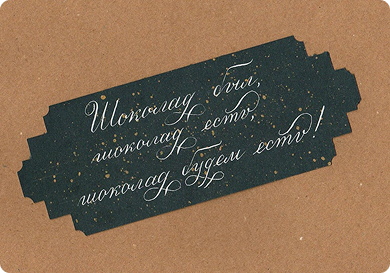 Шоколад был,
шоколад есть,
шоколад будем есть!